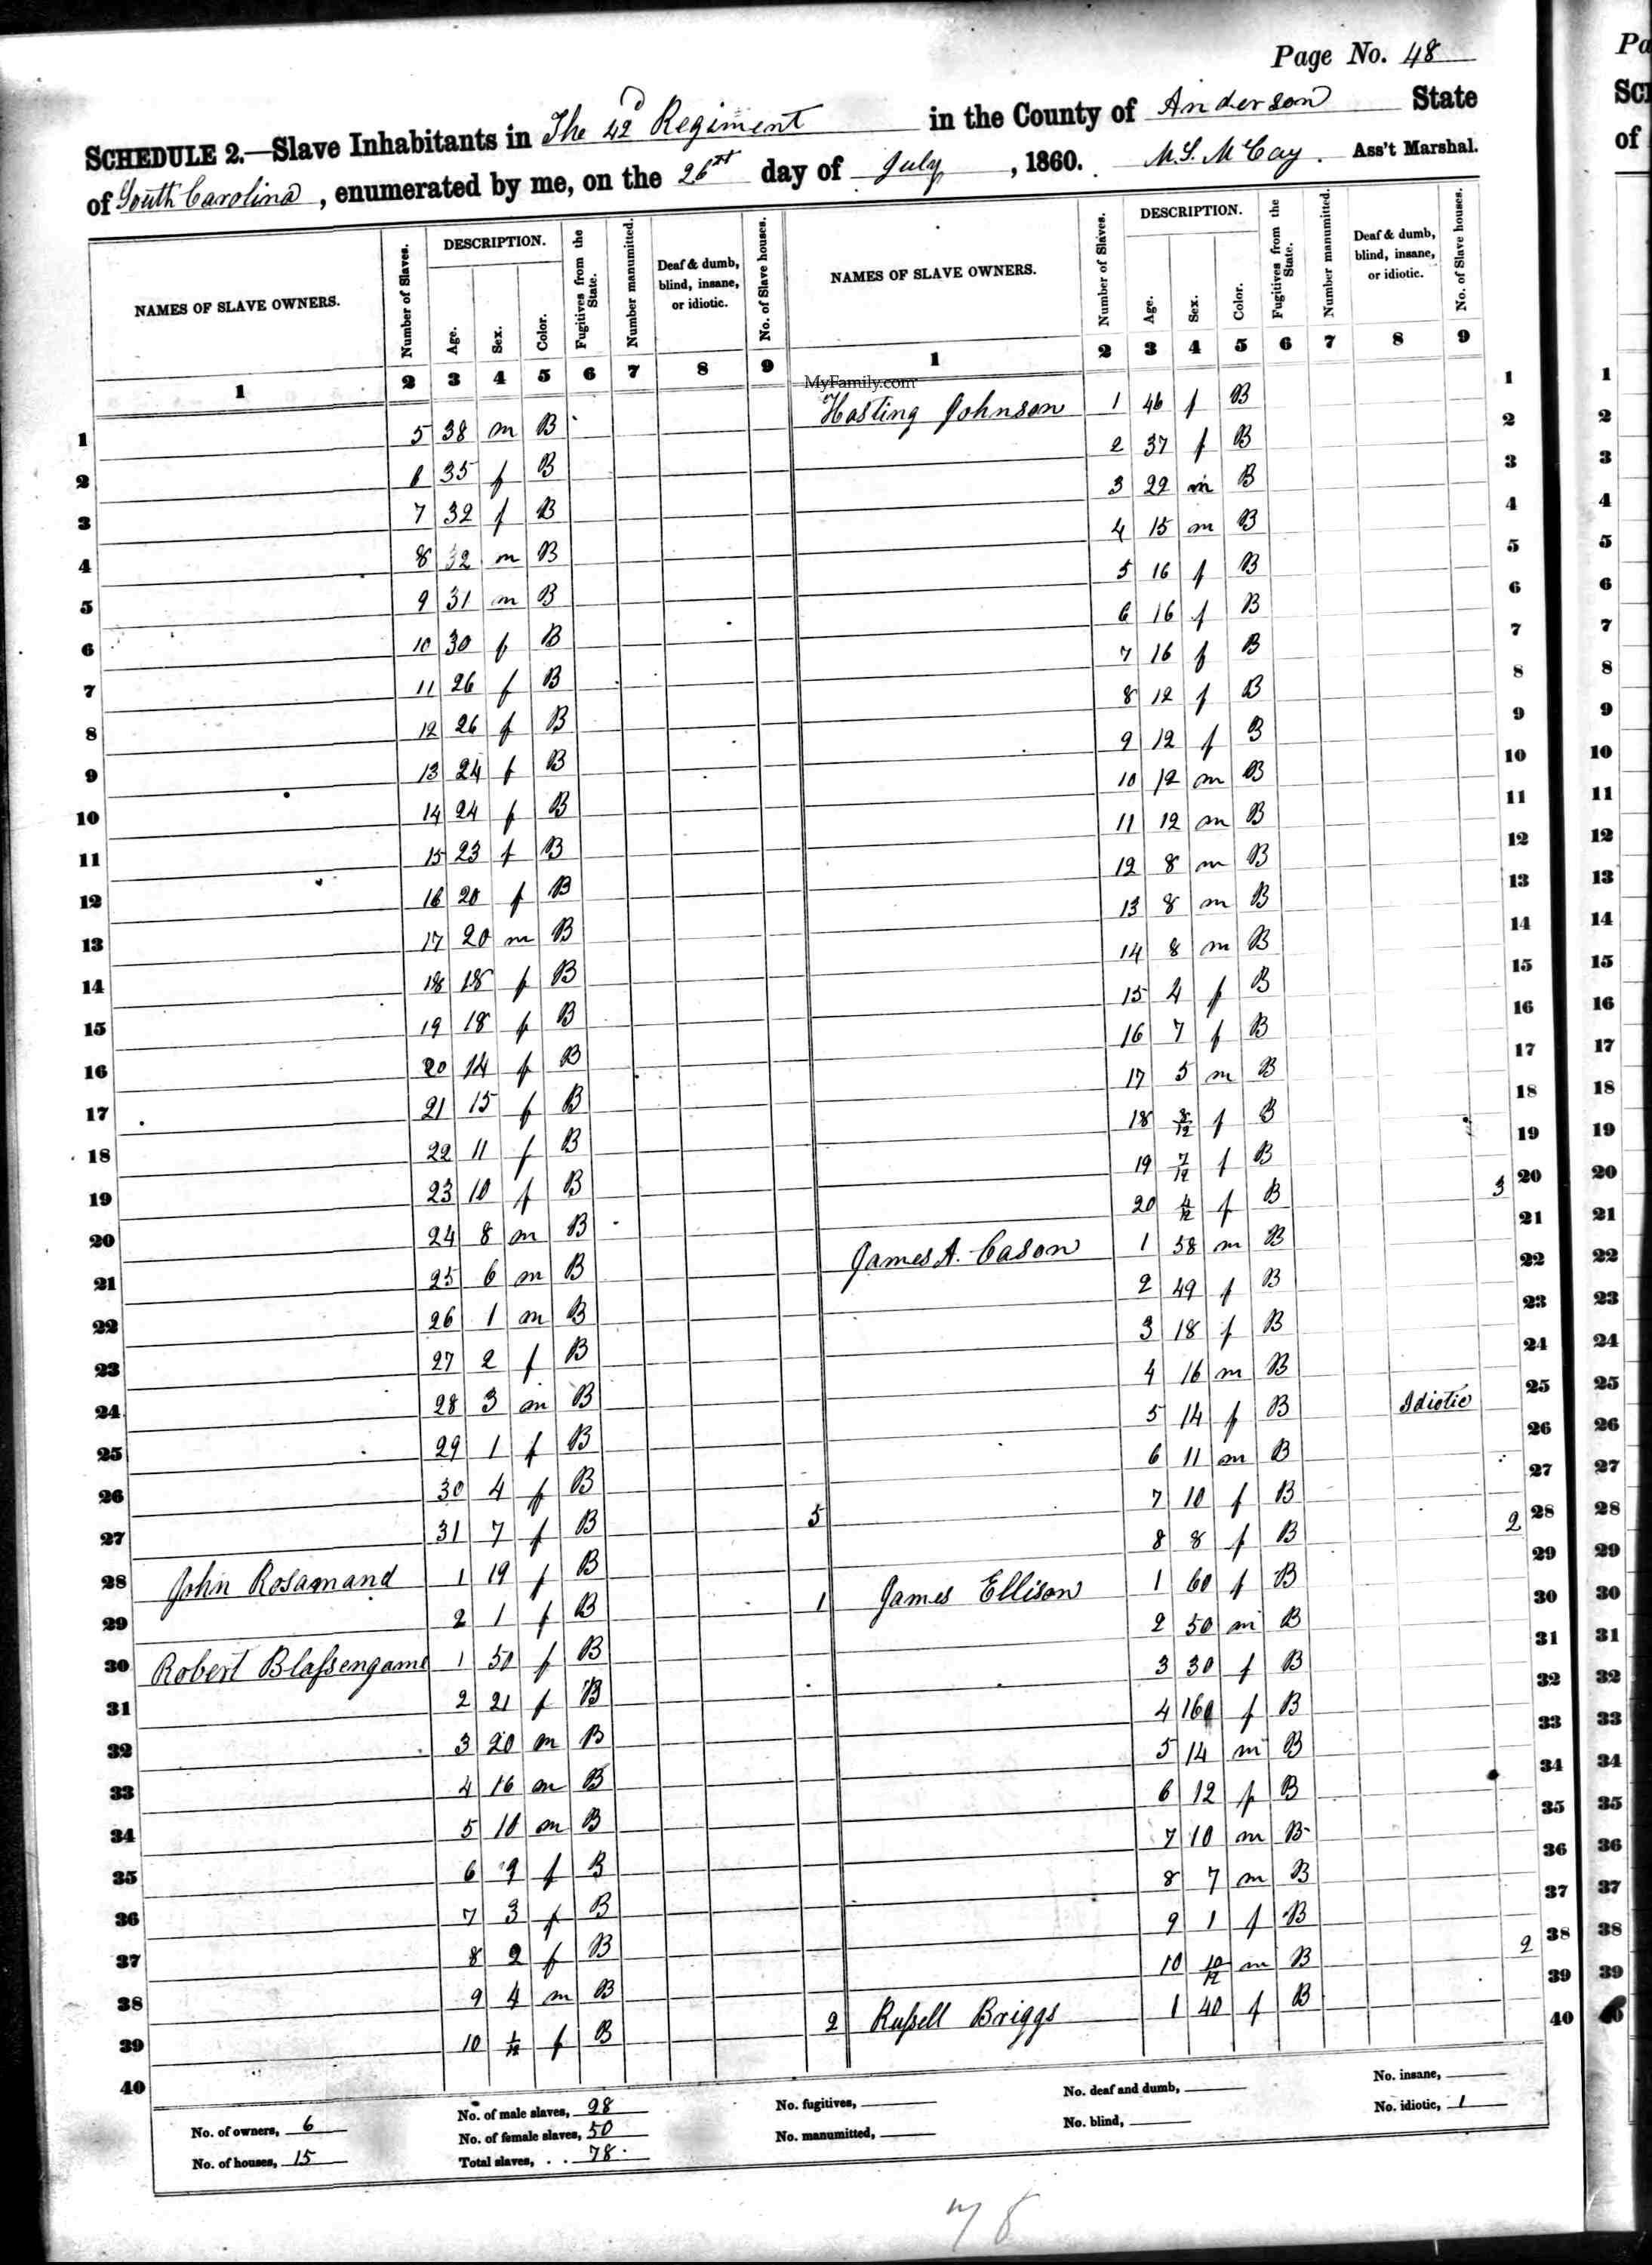 Page No. 48
SCHEDULE 2.—Slave Inhabitants in The 42d Regiment in the County of Anderson State
of South Carolina, enumerated by me, on the 26th day of July, 1860. M. S. McCay. Ass't Marshal.
NAMES OF SLAVE OWNERS. Number of Slaves. DESCRIPTION. Age. Sex. Color. Fugitives from the State. Number manumitted. Deaf & dumb, blind, insane, or idiotic. No. of Slave houses.
1 2 3 4 5 6 7 8 9
1 5 38 m B
2 6 35 f B
3 7 32 f B
4 8 32 m B
5 9 31 m B
6 10 30 f B
7 11 26 f B
8 12 26 f B
9 13 24 f B
10 14 24 f B
11 15 23 f B
12 16 20 f B
13 17 20 m B
14 18 18 f B
15 19 18 f B
16 20 14 f B
17 21 15 f B
18 22 11 f B
19 23 10 f B
20 24 8 m B
21 25 6 m B
22 26 1 m B
23 27 2 f B
24 28 3 m B
25 29 1 f B
26 30 4 f B
27 31 7 f B 5
28 John Rosamand 1 19 f B
29 2 1 f B 1
30 Robert Blassengame 1 50 f B
31 2 21 f B
32 3 20 m B
33 4 16 m B
34 5 10 m B
35 6 9 f B
36 7 3 f B
37 8 2 f B
38 9 4 m B
39 10 1/12 f B 2
40
NAMES OF SLAVE OWNERS. Number of Slaves. DESCRIPTION. Age. Sex. Color. Fugitives from the State. Number manumitted. Deaf & dumb, blind, insane, or idiotic. No. of Slave houses.
1 2 3 4 5 6 7 8 9
MyFamily.com
Hasting Johnson 1 46 f B 1
2 37 f B 2
3 29 m B 3
4 15 m B 4
5 16 f B 5
6 16 f B 6
7 16 f B 7
8 12 f B 8
9 12 f B 9
10 12 m B 10
11 12 m B 11
12 8 m B 12
13 8 m B 13
14 8 m B 14
15 4 f B 15
16 7 f B 16
17 5 m B 17
18 8/12 f B 18
19 7/12 f B 19
20 4/12 f B 3 20
James A. Cason 1 58 m B 21
2 49 f B 22
3 18 f B 23
4 16 m B 24
5 14 f B Idiotic 25
6 11 m B 26
7 10 f B 27
8 8 f B 2 28
James Ellison 1 60 f B 29
2 50 m B 30
3 30 f B 31
4 16 f B 32
5 14 m B 33
6 12 f B 34
7 10 m B 35
8 7 m B 36
9 1 f B 37
10 10/12 m B 2 38
Russell Briggs 1 40 f B 39
40
No. of owners, 6 No. of male slaves, 28 No. fugitives, No. deaf and dumb, No. insane,
No. of houses, 15 No. of female slaves, 50 No. manumitted, No. blind, No. idiotic, 1
Total slaves, . . 78
78
Pa
SCH
of
1
2
3
4
5
6
7
8
9
10
11
12
13
14
15
16
17
18
19
20
21
22
23
24
25
26
27
28
29
30
31
32
33
34
35
36
37
38
39